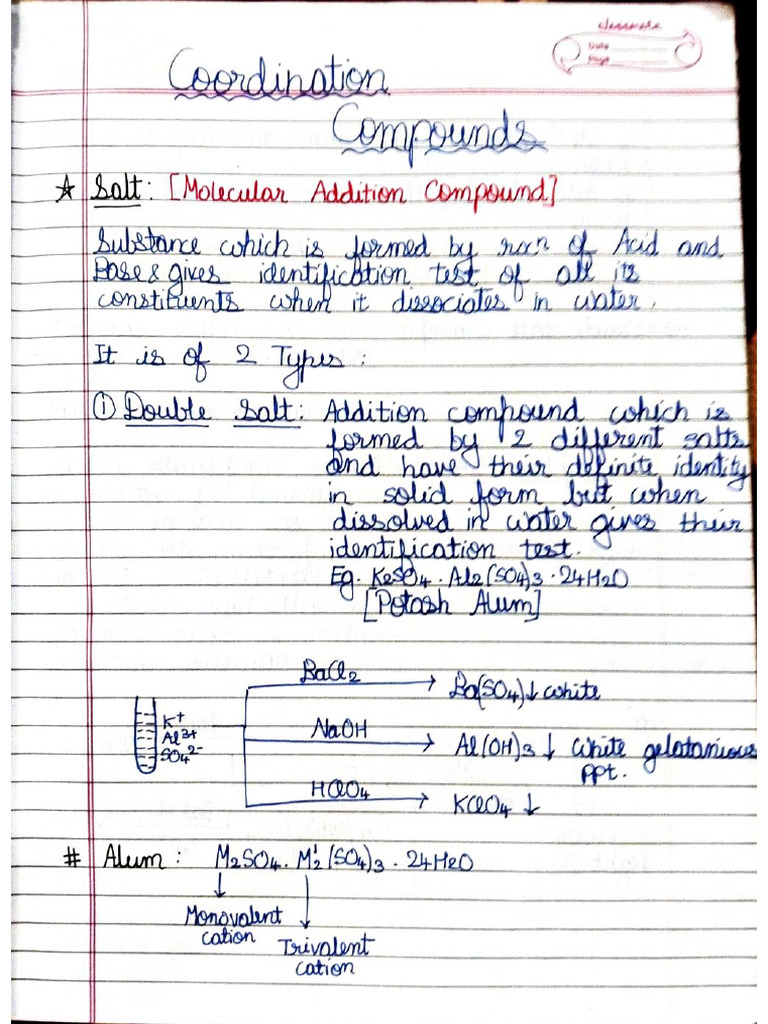 classmate
Date
Page
Coordination
Compounds
☆ Salt: [Molecular Addition Compound]
Substance which is formed by rxn of Acid and
Base & gives identification test of all its
constituents when it dissociates in water.
It is of 2 Types:
① Double Salt: Addition compound which is
formed by 2 different salts
and have their definite identity
in solid form but when
dissolved in water gives their
identification test.
Eg. K2SO4 · Al2(SO4)3 · 24H2O
[Potash Alum]
BaCl2 → Ba(SO4)↓ white
K+
Al3+
SO42-
NaOH → Al(OH)3 ↓ white gelatanious
ppt.
HClO4 → KClO4 ↓
# Alum: M2SO4 · M'2(SO4)3 · 24H2O
Monovalent
cation
Trivalent
cation